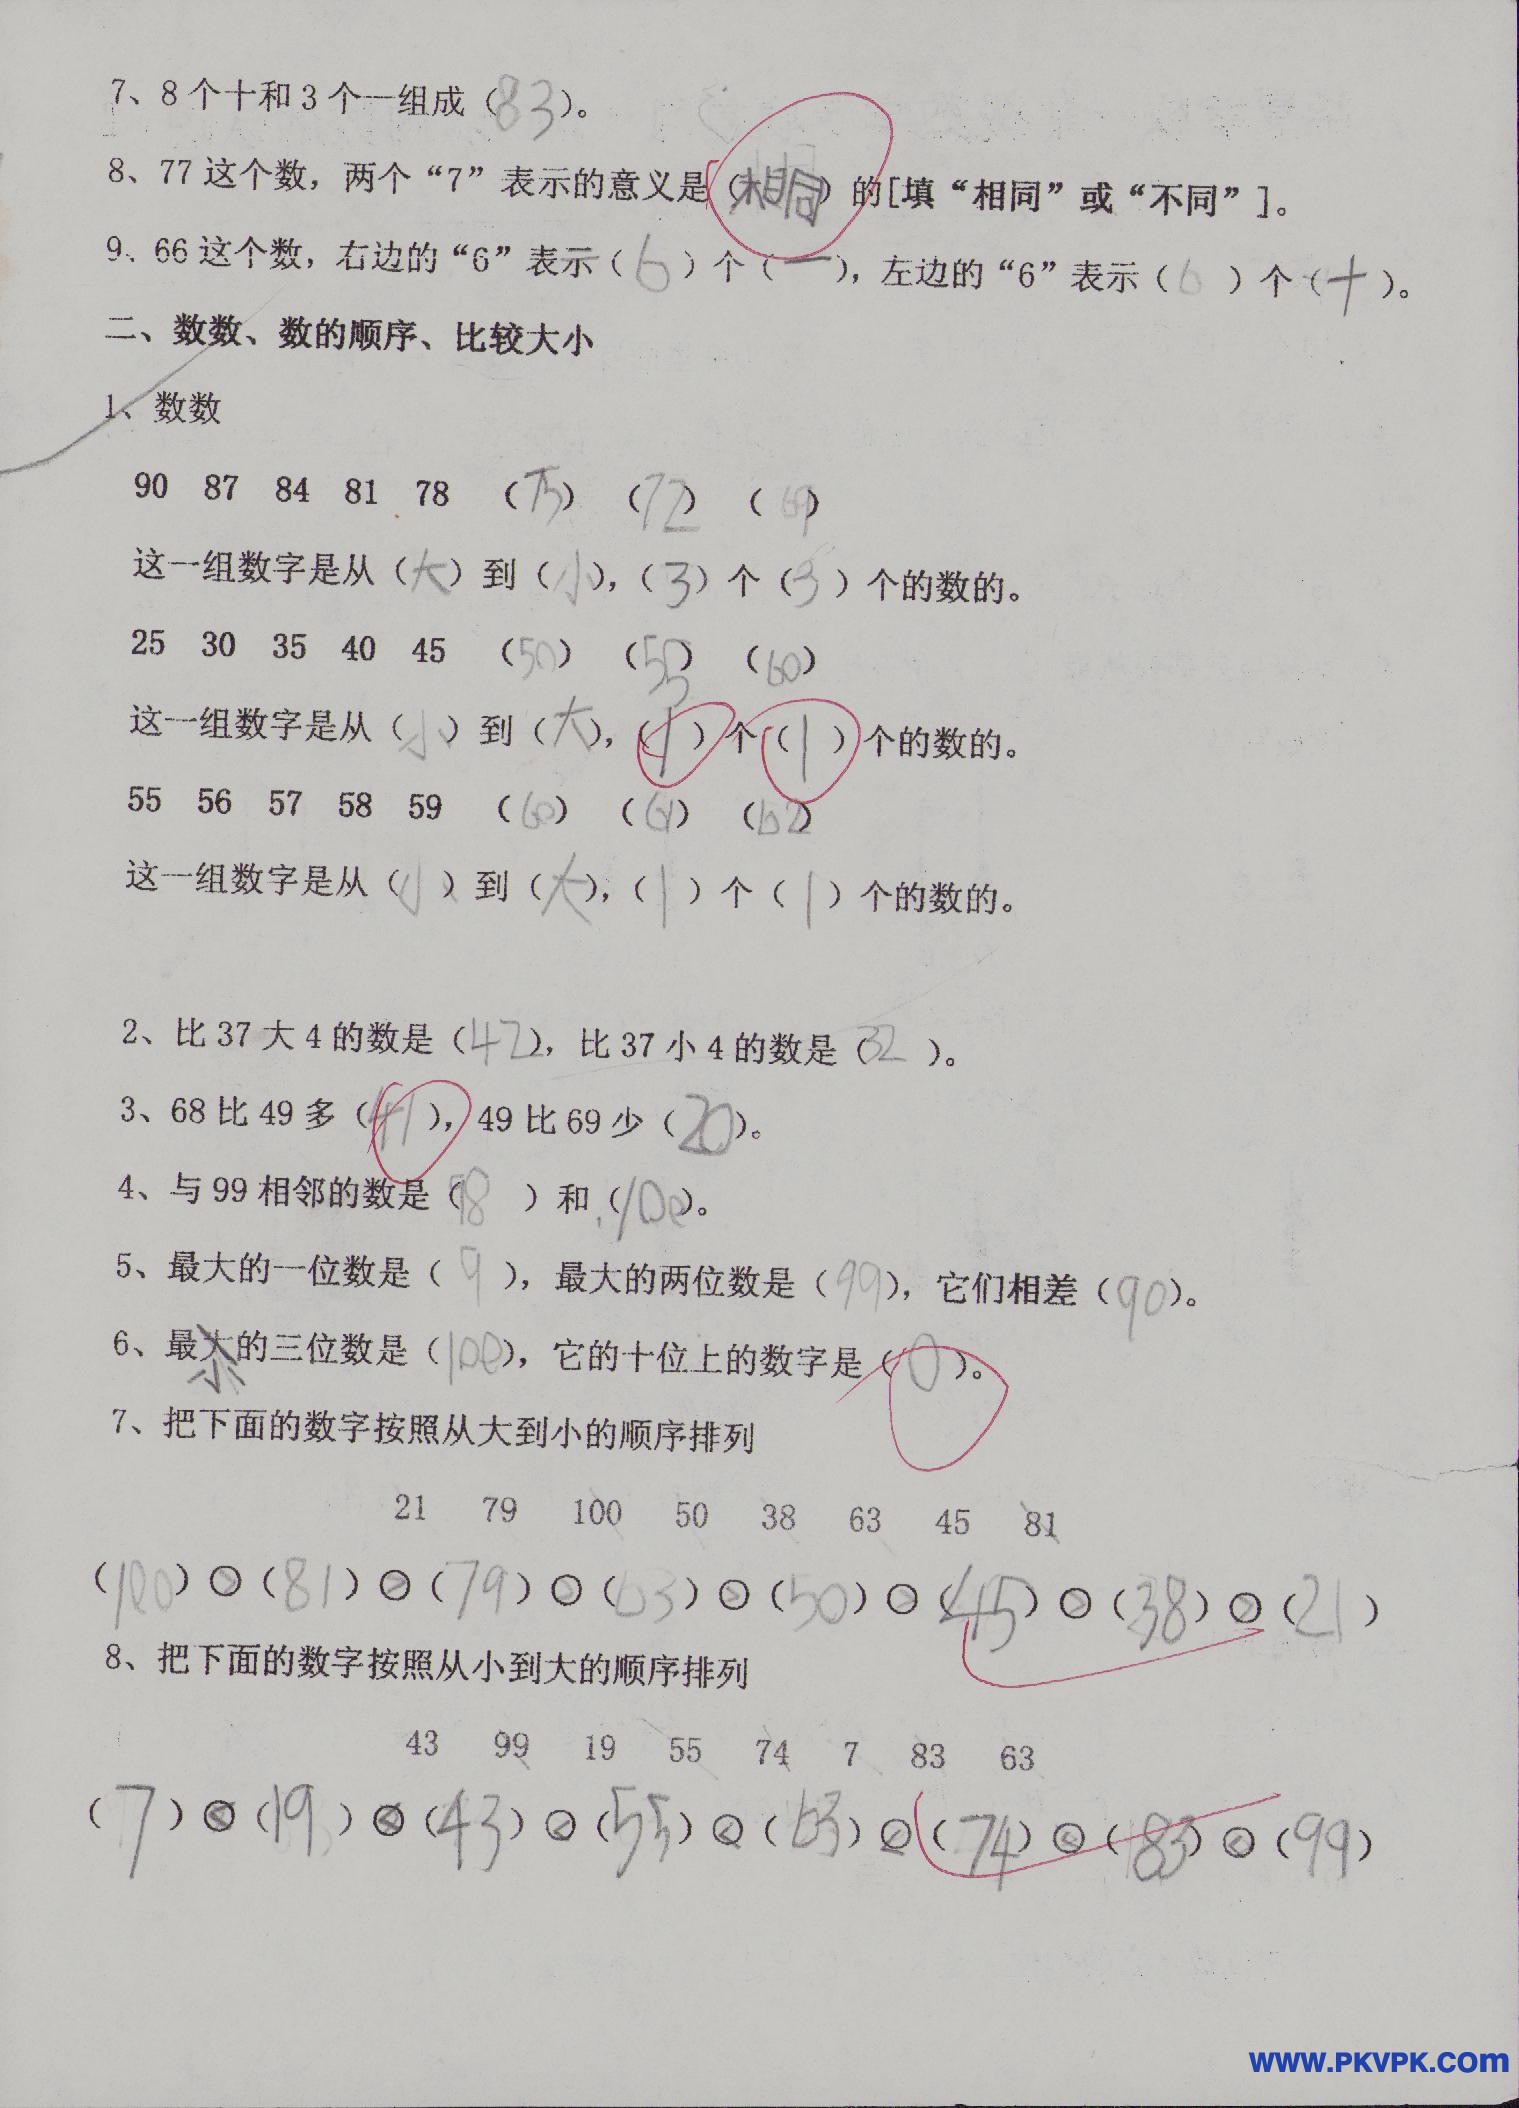 7、8个十和3个一组成（83）。
8、77这个数，两个“7”表示的意义是（相同）的[填“相同”或“不同”]。
9、66这个数，右边的“6”表示（6）个（一），左边的“6”表示（6）个（十）。
二、数数、数的顺序、比较大小
1、数数
90 87 84 81 78 （75） （72） （69）
这一组数字是从（大）到（小），（3）个（3）个的数的。
25 30 35 40 45 （50） （55） （60）
这一组数字是从（小）到（大），（1）个（1）个的数的。
55 56 57 58 59 （60） （61） （62）
这一组数字是从（小）到（大），（1）个（1）个的数的。
2、比37大4的数是（42），比37小4的数是（32）。
3、68比49多（41），49比69少（20）。
4、与99相邻的数是（98）和（100）。
5、最大的一位数是（9），最大的两位数是（99），它们相差（90）。
6、最小的三位数是（100），它的十位上的数字是（0）。
7、把下面的数字按照从大到小的顺序排列
21 79 100 50 38 63 45 81
（100）>（81）>（79）>（63）>（50）>（45）>（38）>（21）
8、把下面的数字按照从小到大的顺序排列
43 99 19 55 74 7 83 63
（7）<（19）<（43）<（55）<（63）<（74）<（83）<（99）
WWW.PKVPK.COm